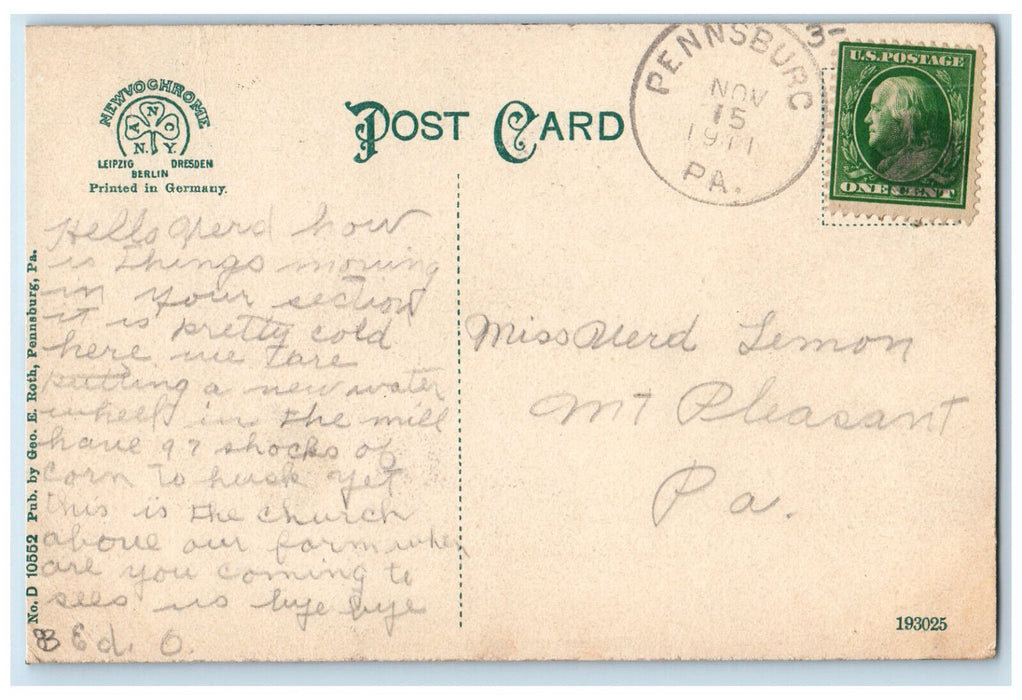 NEWVOCHROME
A N C
N. Y.
LEIPZIG DRESDEN
BERLIN
Printed in Germany.
POST CARD
PENNSBURG
NOV
15
1911
PA.
3-
U.S. POSTAGE
ONE CENT
Hello Verd how
is things moving
in your section
it is pretty cold
here we are
putting a new water
wheel in the mill
have 97 shocks of
corn to husk yet
this is the church
above our farm when
are you coming to
sees us bye bye
Ed. O.
Miss Verd Lemon
Mt Pleasant
Pa.
No. D 10552 Pub. by Geo. E. Roth, Pennsburg, Pa.
193025